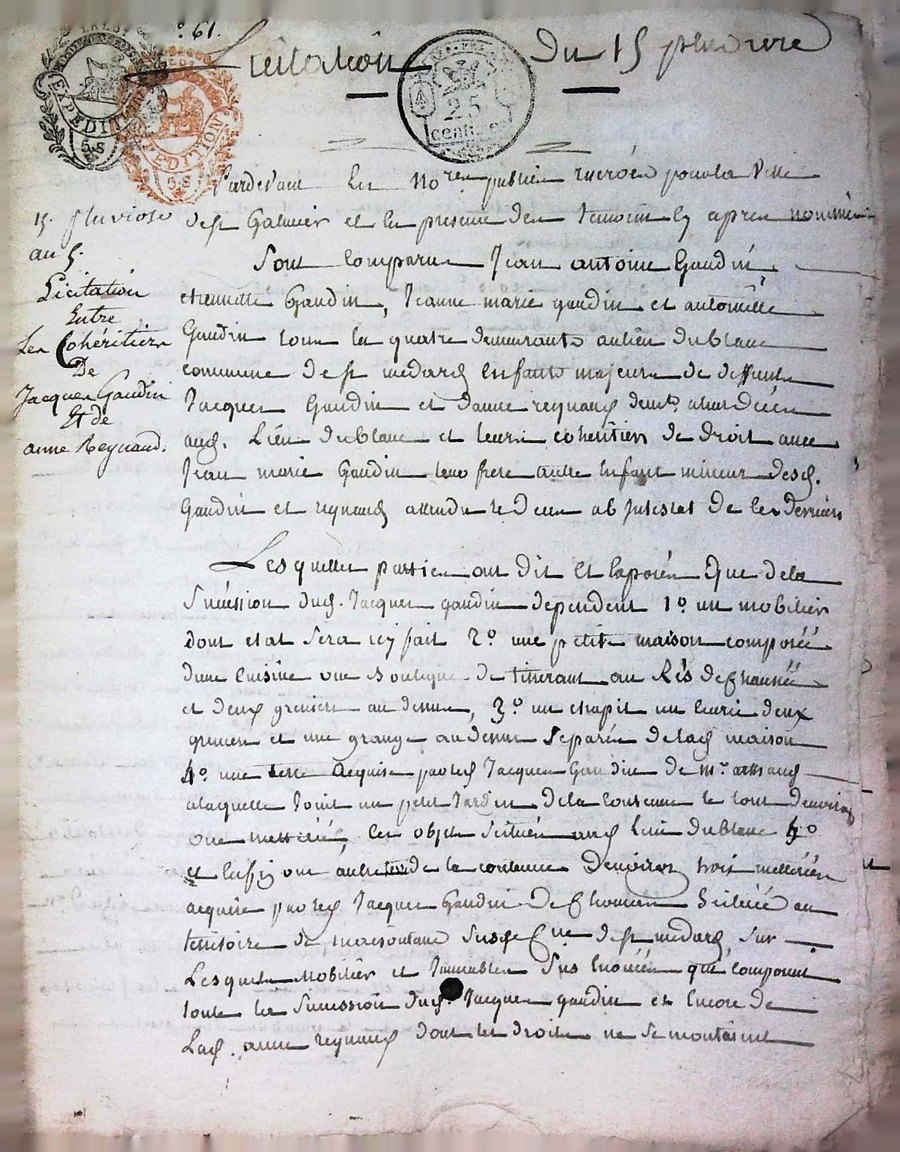 61.
Licitation Du 15 pluviose
EXPEDITION
5.S
EXPEDITION
5.S
25
centimes
Pardevant Les No.res publics pour la Ville
de st Galmier et en presence des temoins cy apres nommés
15. pluviose
au 5.
Licitation
Entre
Les Cohéritiers
De
Jacques Gaudin
Et de
anne Reynaud.
Sont Comparus Jean antoine Gaudin,
Gaudin, Jeanne marie gaudin et antoinette
Gaudin tous les quatre demeurants au lieu dublanc
commune de st medard Enfants majeurs de deffunts
Jacques Gaudin et danne reynaud
Lieu dublanc et leurs coheritiers de droit avec
Jean marie Gaudin leur frere autre Enfant mineur desd.
Gaudin et reynaud ab Intestat de ces derniers
Lesquelles parties ont dit Et Exposés Que dela
Succession dud. Jacques gaudin dependent 1.o un mobilier
dont etat sera icy fait 2.o une petite maison composée
dune Cuisine une Boutique de tisserant au Rés de Chaussée
et deux greniers au dessus, 3.o un chapit un Ecurie deux
greniers et une grange au dessus Separée delad maison
4.o une terre acquise par led Jacques Gaudin de m.r
alaquelle Joint un petit Jardin dela contenue le tout denviron
une metterée, les objets Scitués aud Lieu dublanc 4.o
et Enfin une autre terre de la contenue Denviron trois metterées
acquise par led Jacques Gaudin De Chomien Scituée au
territoire de susd C.ne de st medard, sur
Lesquels Mobilier et Immeubles Sus Enoncés qui composent
toute la Succession dud. Jacques gaudin et Encore de
Lad. anne reynaud dont les droits ne se montaient